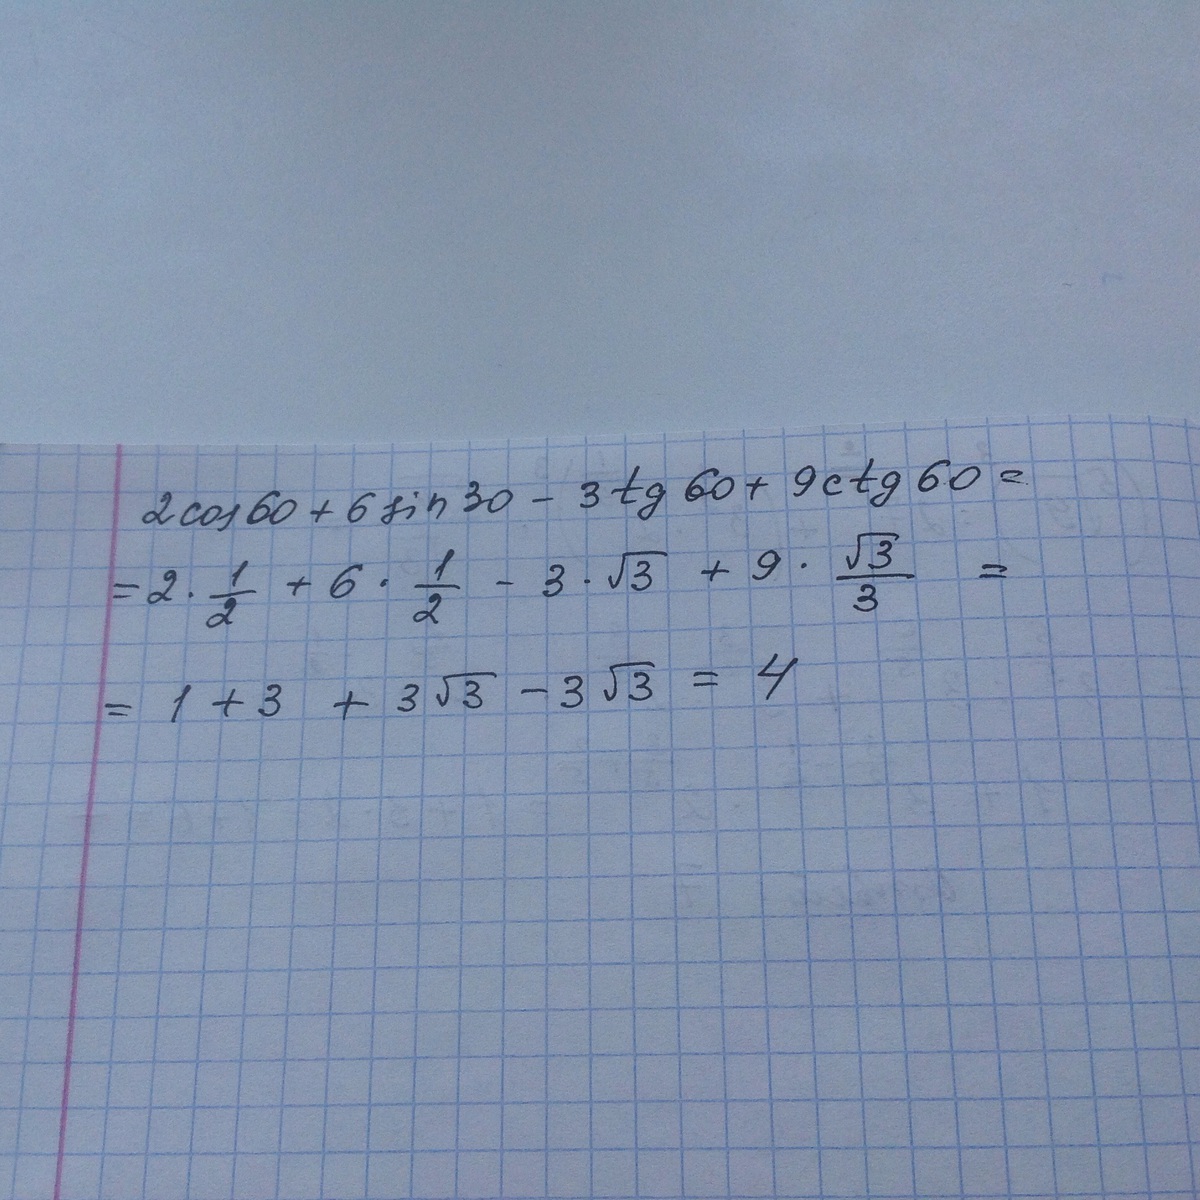 2cos60 + 6sin30 - 3tg60 + 9ctg60 =
= 2 · 1/2 + 6 · 1/2 - 3 · √3 + 9 · √3/3 =
= 1 + 3 + 3√3 - 3√3 = 4